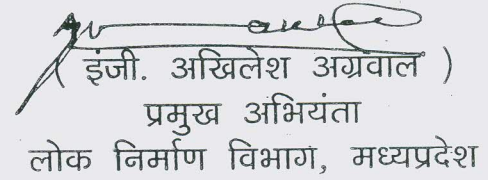 ( इंजी. अखिलेश अग्रवाल )
प्रमुख अभियंता
लोक निर्माण विभाग, मध्यप्रदेश